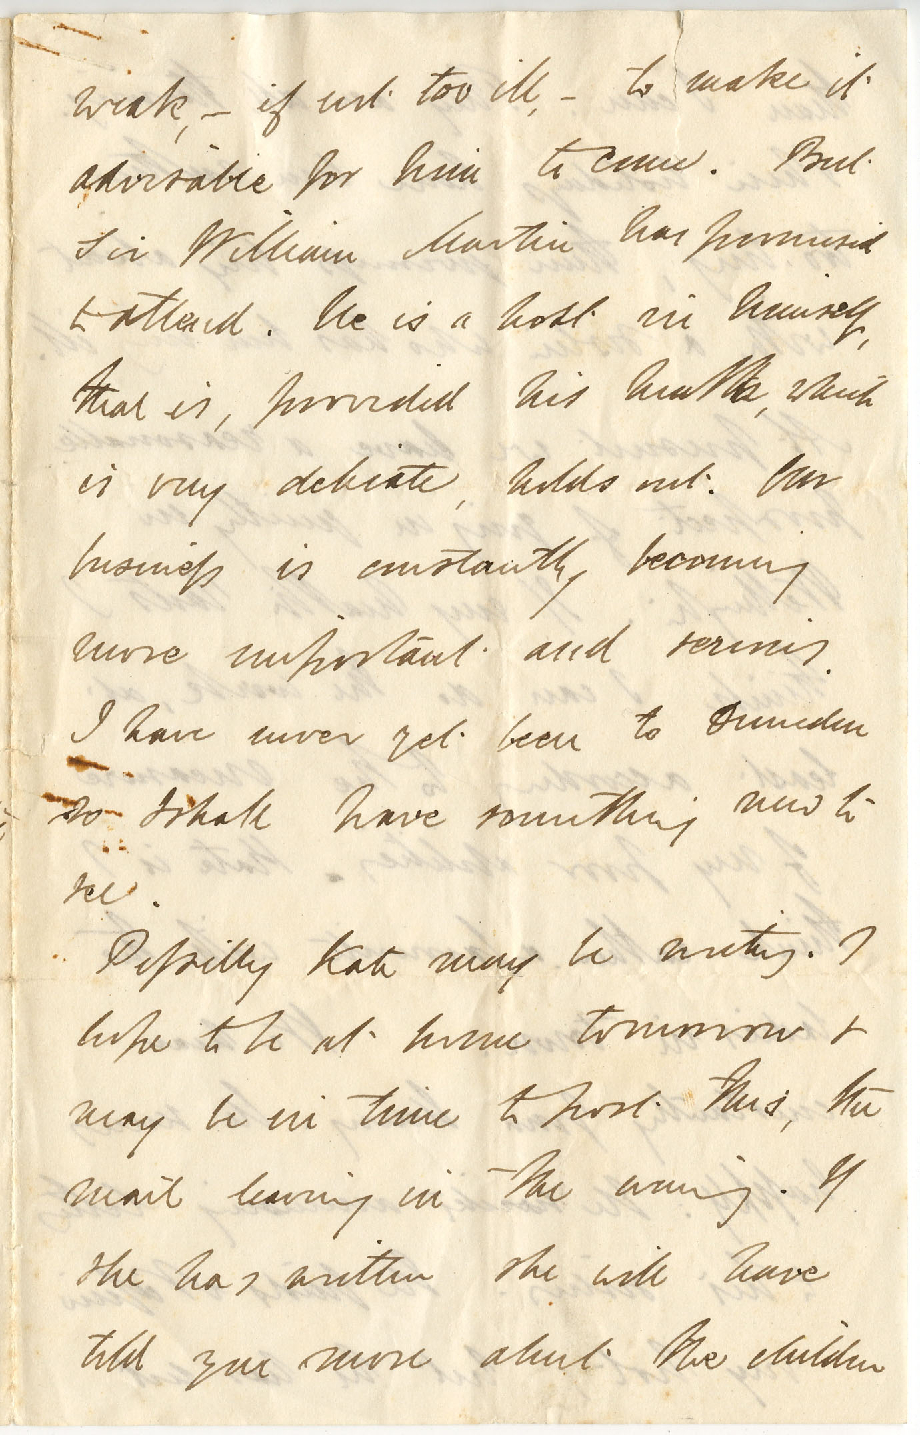 weak, – if not too ill, – to make it
advisable for him to come. But
Sir William Martin has promised
to attend. He is a host in himself,
that is, provided his health, which
is very delicate, holds out. Our
business is constantly becoming
more important and serious.
I have never yet been to Dunedin
so I shall have something new to
see.
Possibly Kate may be writing. I
hope to be at home tomorrow &
may be in time to post this, the
mail leaving in the evening. If
she has written she will have
told you more about the children